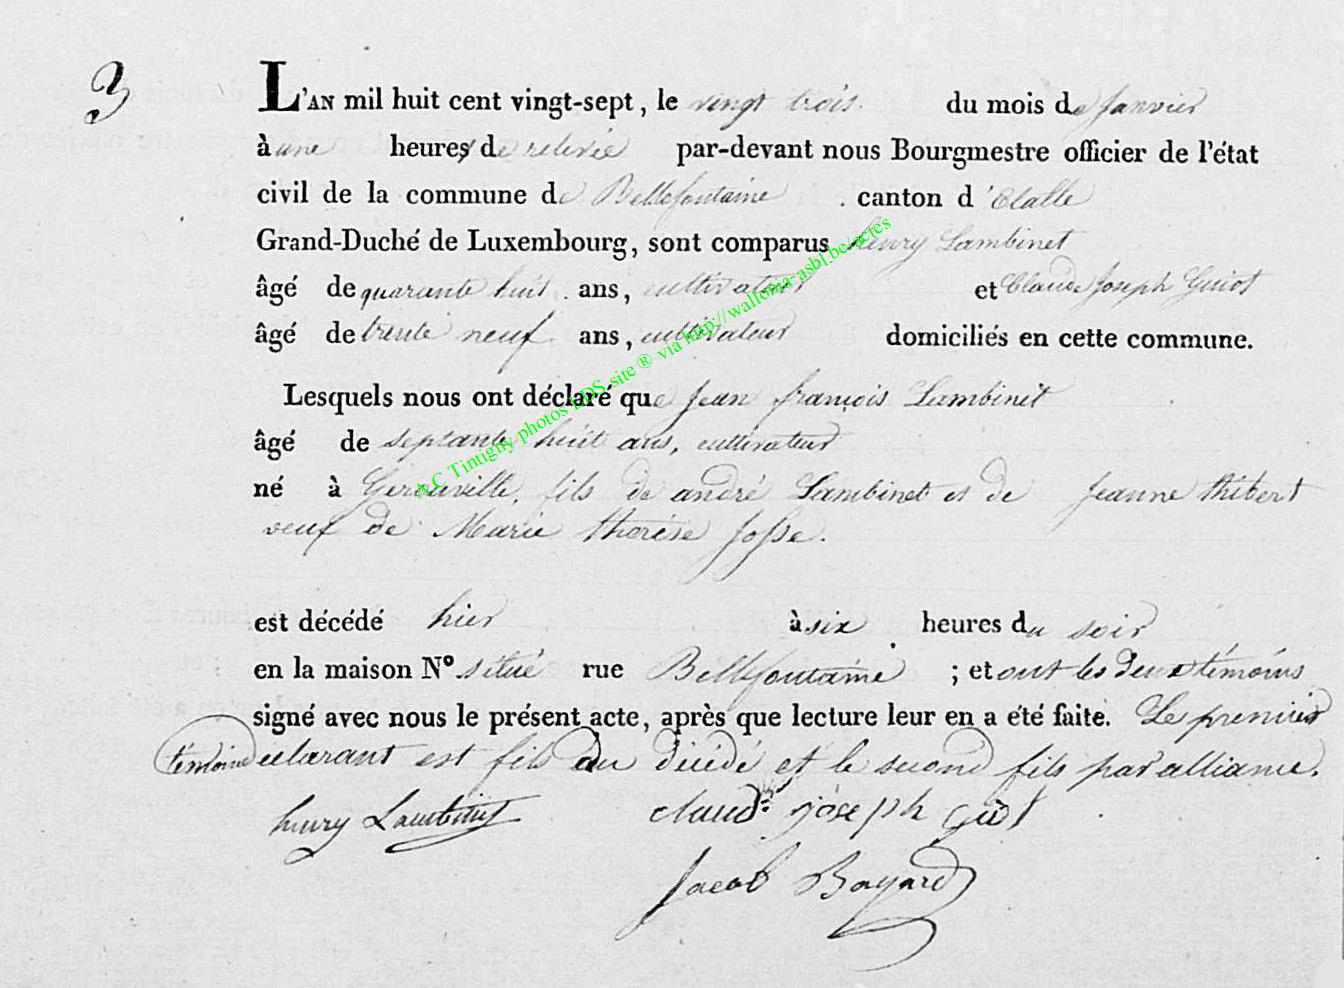 3
L'AN mil huit cent vingt-sept, le vingt trois. du mois de Janvier
à une heures de relevée par-devant nous Bourgmestre officier de l'état
civil de la commune de Bellefontaine canton d'Etalle
Grand-Duché de Luxembourg, sont comparus henry Lambinet
âgé de quarante huit ans, cultivateur et Claude Joseph Guiot
âgé de trente neuf ans, cultivateur domiciliés en cette commune.
Lesquels nous ont déclaré que Jean françois Lambinet
âgé de septante huit ans, cultivateur
né à Gerouville, fils de andré Lambinet et de Jeanne thibert
veuf de Marie thérèse Josse.
est décédé hier à six heures du soir
en la maison N° située rue Bellefontaine ; et ont les deux témoins
signé avec nous le présent acte, après que lecture leur en a été faite. Le premier
témoin déclarant est fils du décédé et le second fils par alliance.
henry Lambinet claude joseph guiot
Jacob Bayard
A.C Tintigny photos LDS site ® via http://wallonia-asbl.be/actes